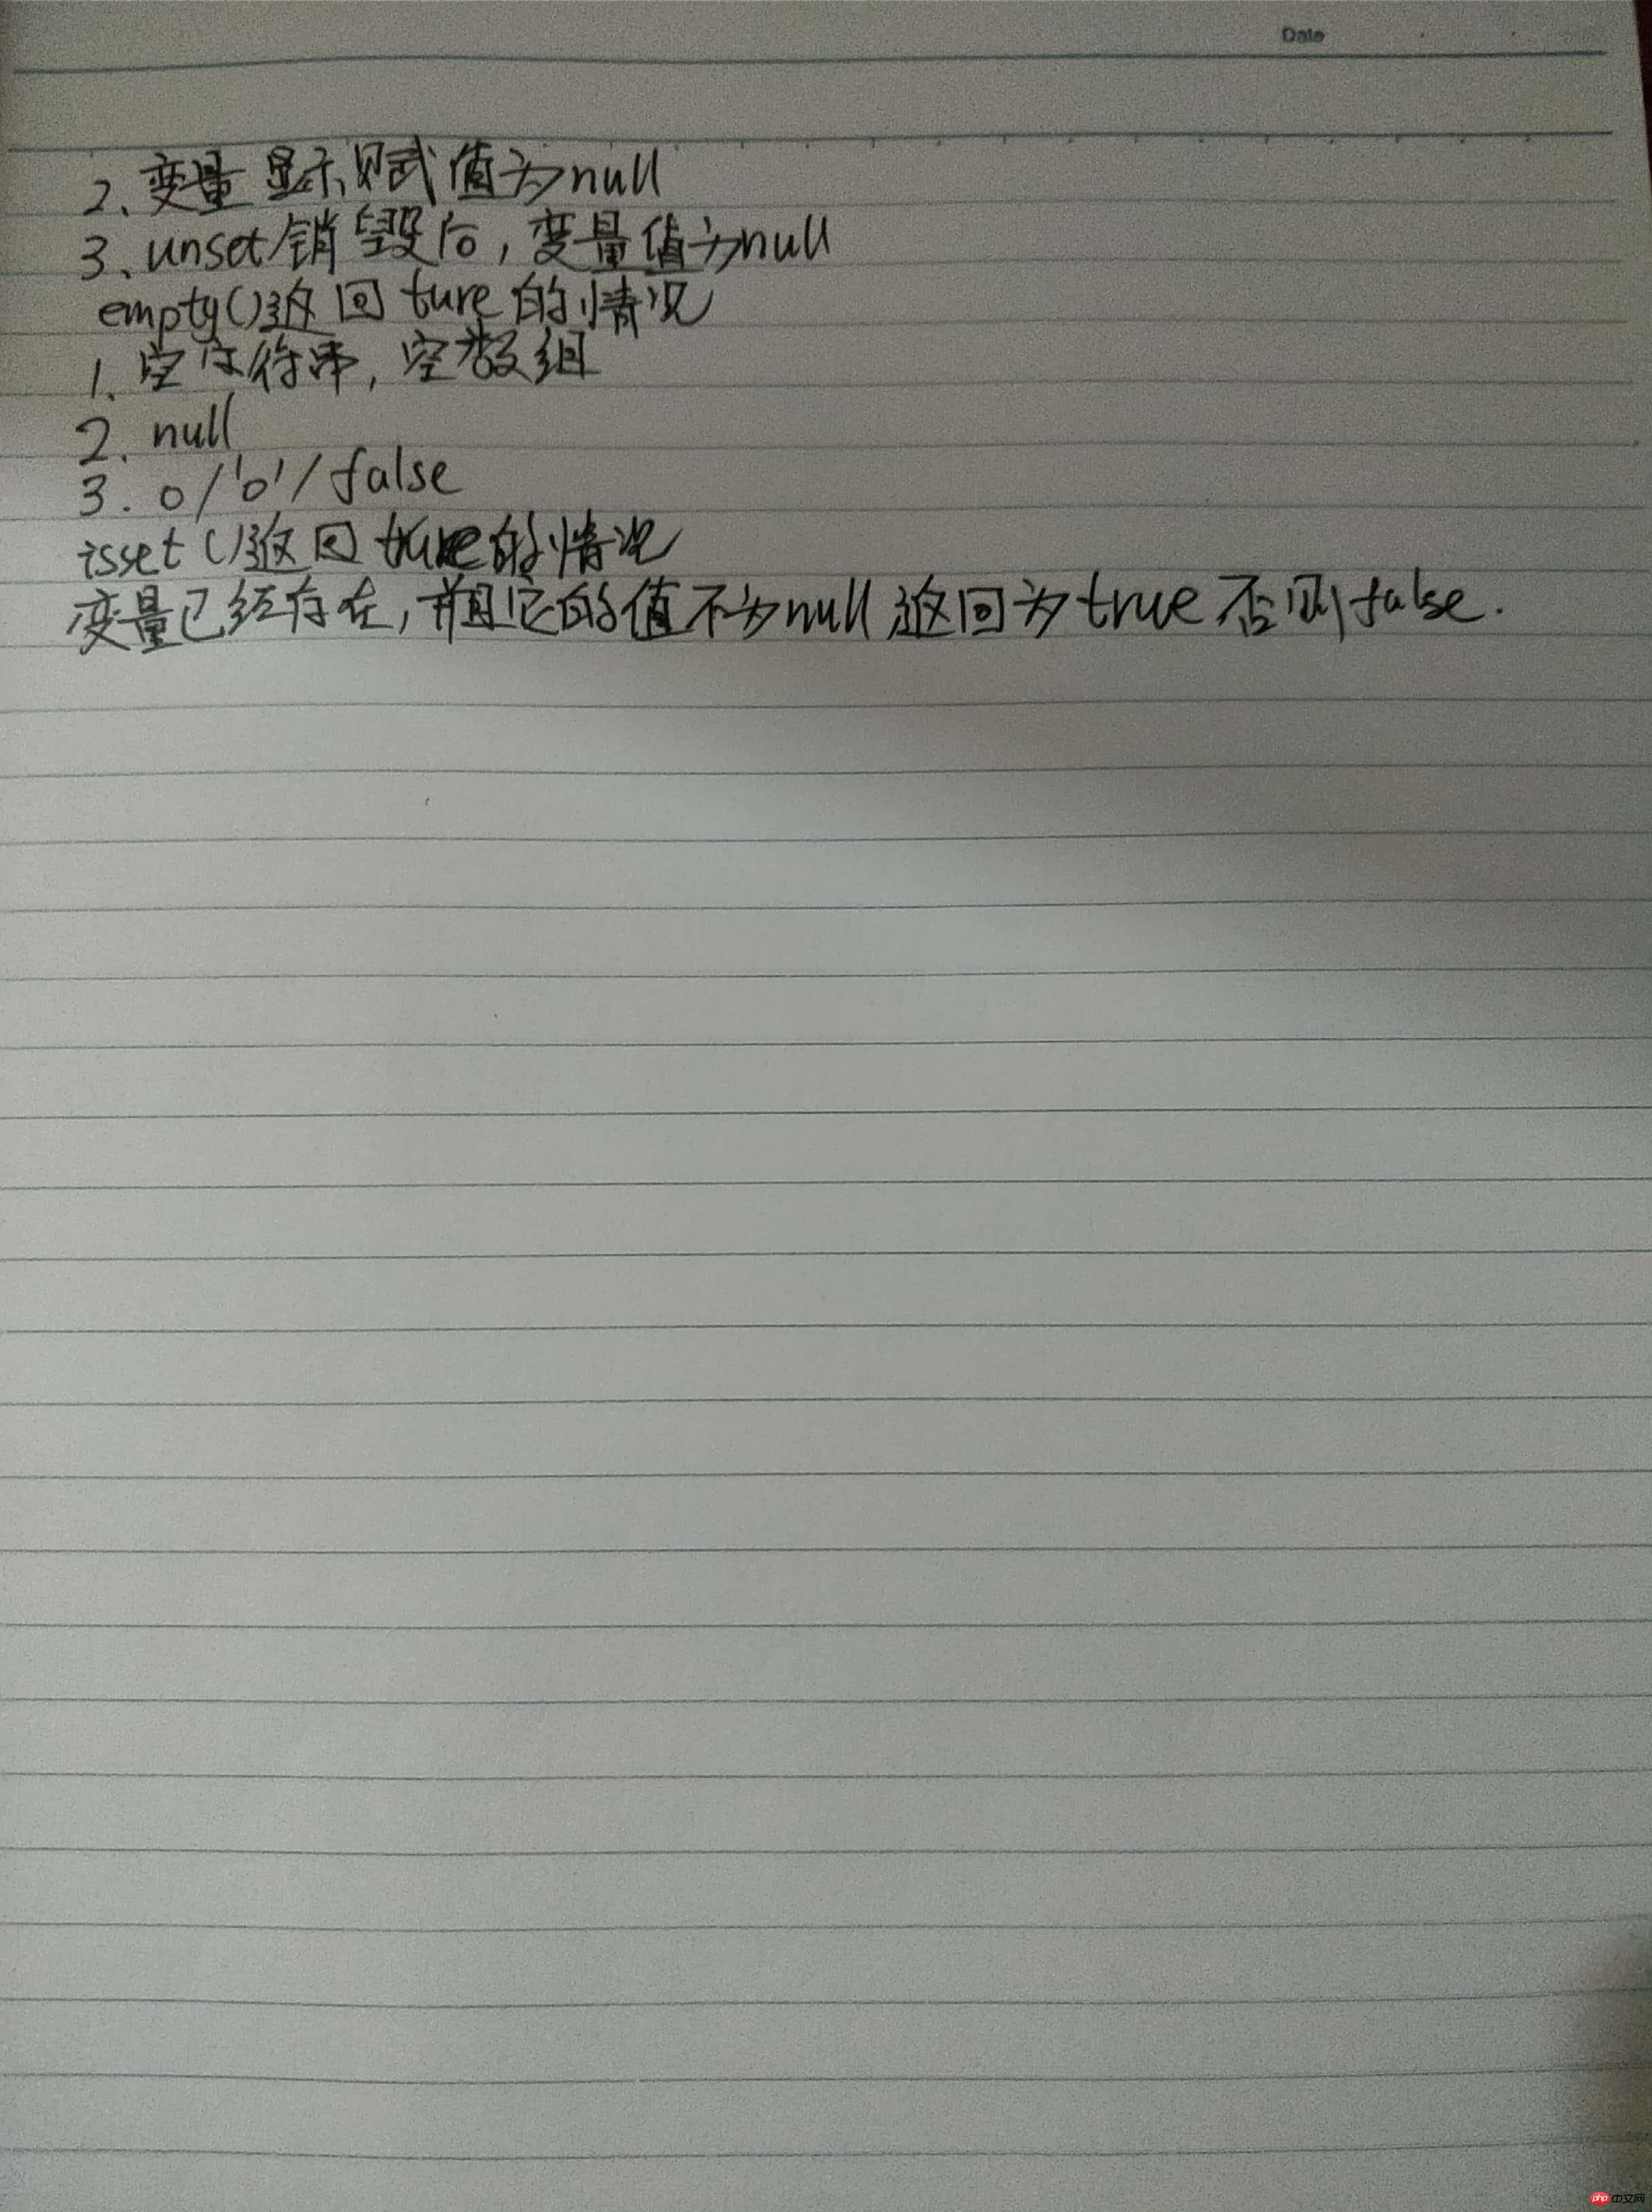 Date
2、变量显示赋值为null
3、unset销毁后,变量值为null
empty()返回ture的情况
1、空字符串,空数组
2. null
3. 0/'0'/false
isset()返回true的情况
变量已经存在,并且它的值不为null返回为true否则false.
php中文网